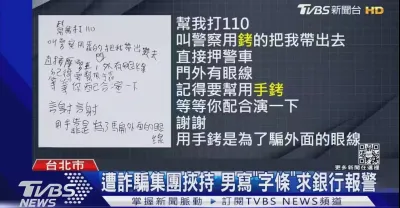 TVBS 新聞台 HD
幫我打110
叫警察用銬的把我帶出去
直接押警車
門外有眼線
記得要幫用手銬
等等你配合演一下
謝謝
用手銬是為了騙外面的眼線
幫我打110
叫警察用銬的把我帶出去
直接押警車
門外有眼線
記得要幫用手銬
等等你配合演一下
謝謝
用手銬是為了騙外面的眼線
更多新聞在這裡
台北市
遭詐騙集團挾持 男寫"字條"求銀行報警
TVBS
NEWS
掌握新聞脈動
訂閱TVBS NEWS頻道